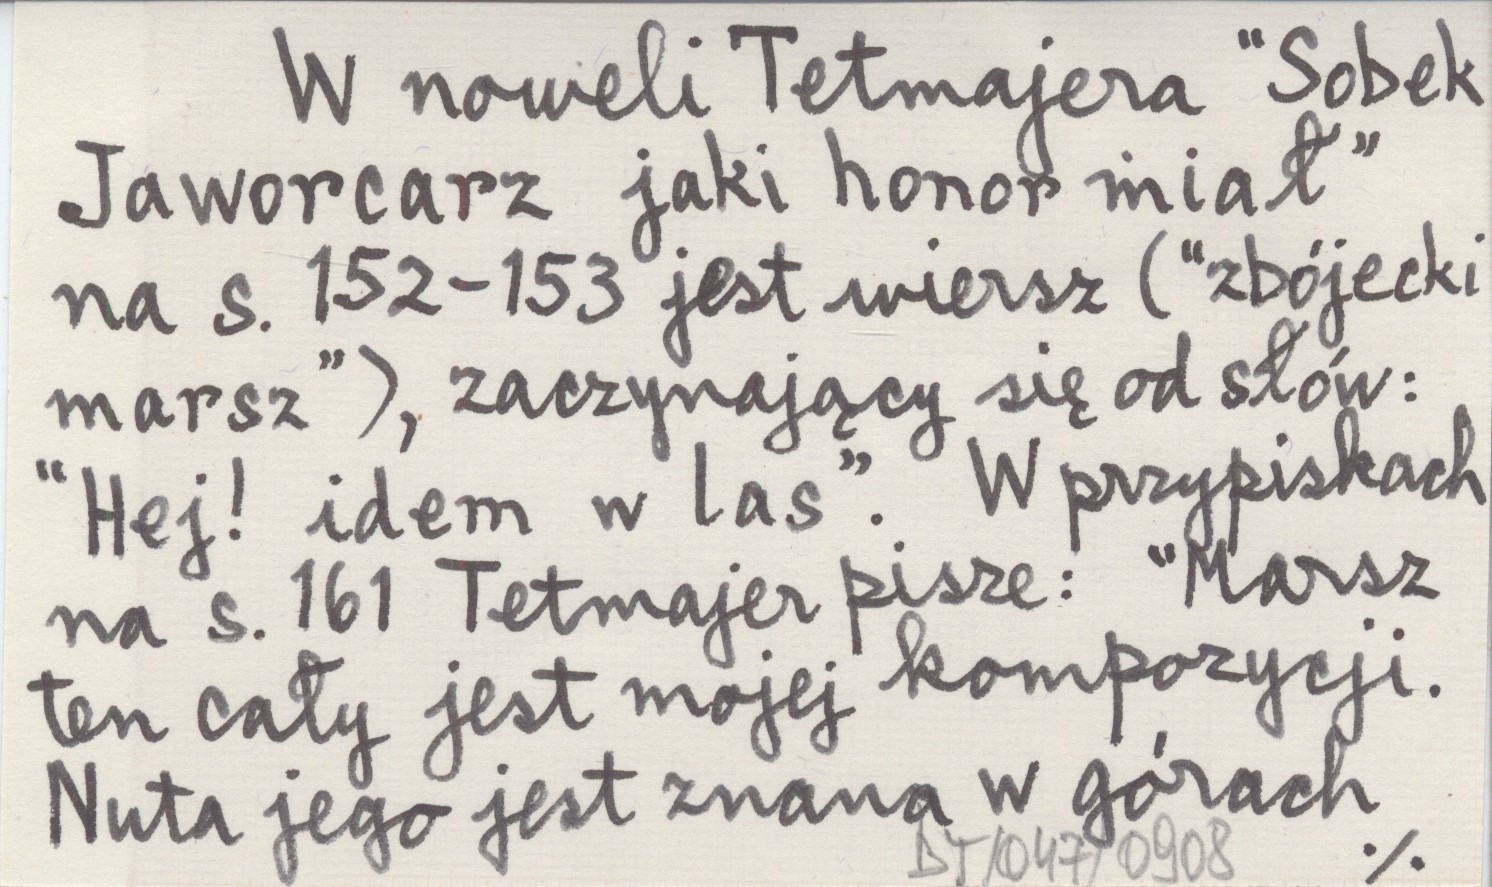 W noweli Tetmajera “Sobek
Jaworcarz jaki honor miał”
na s. 152-153 jest wiersz (“zbójecki
marsz”), zaczynający się od słów:
“Hej! idem w las”. W przypiskach
na s. 161 Tetmajer pisze: “Marsz
ten cały jest mojej kompozycji.
Nuta jego jest znana w górach
DT/047/0908 ./.